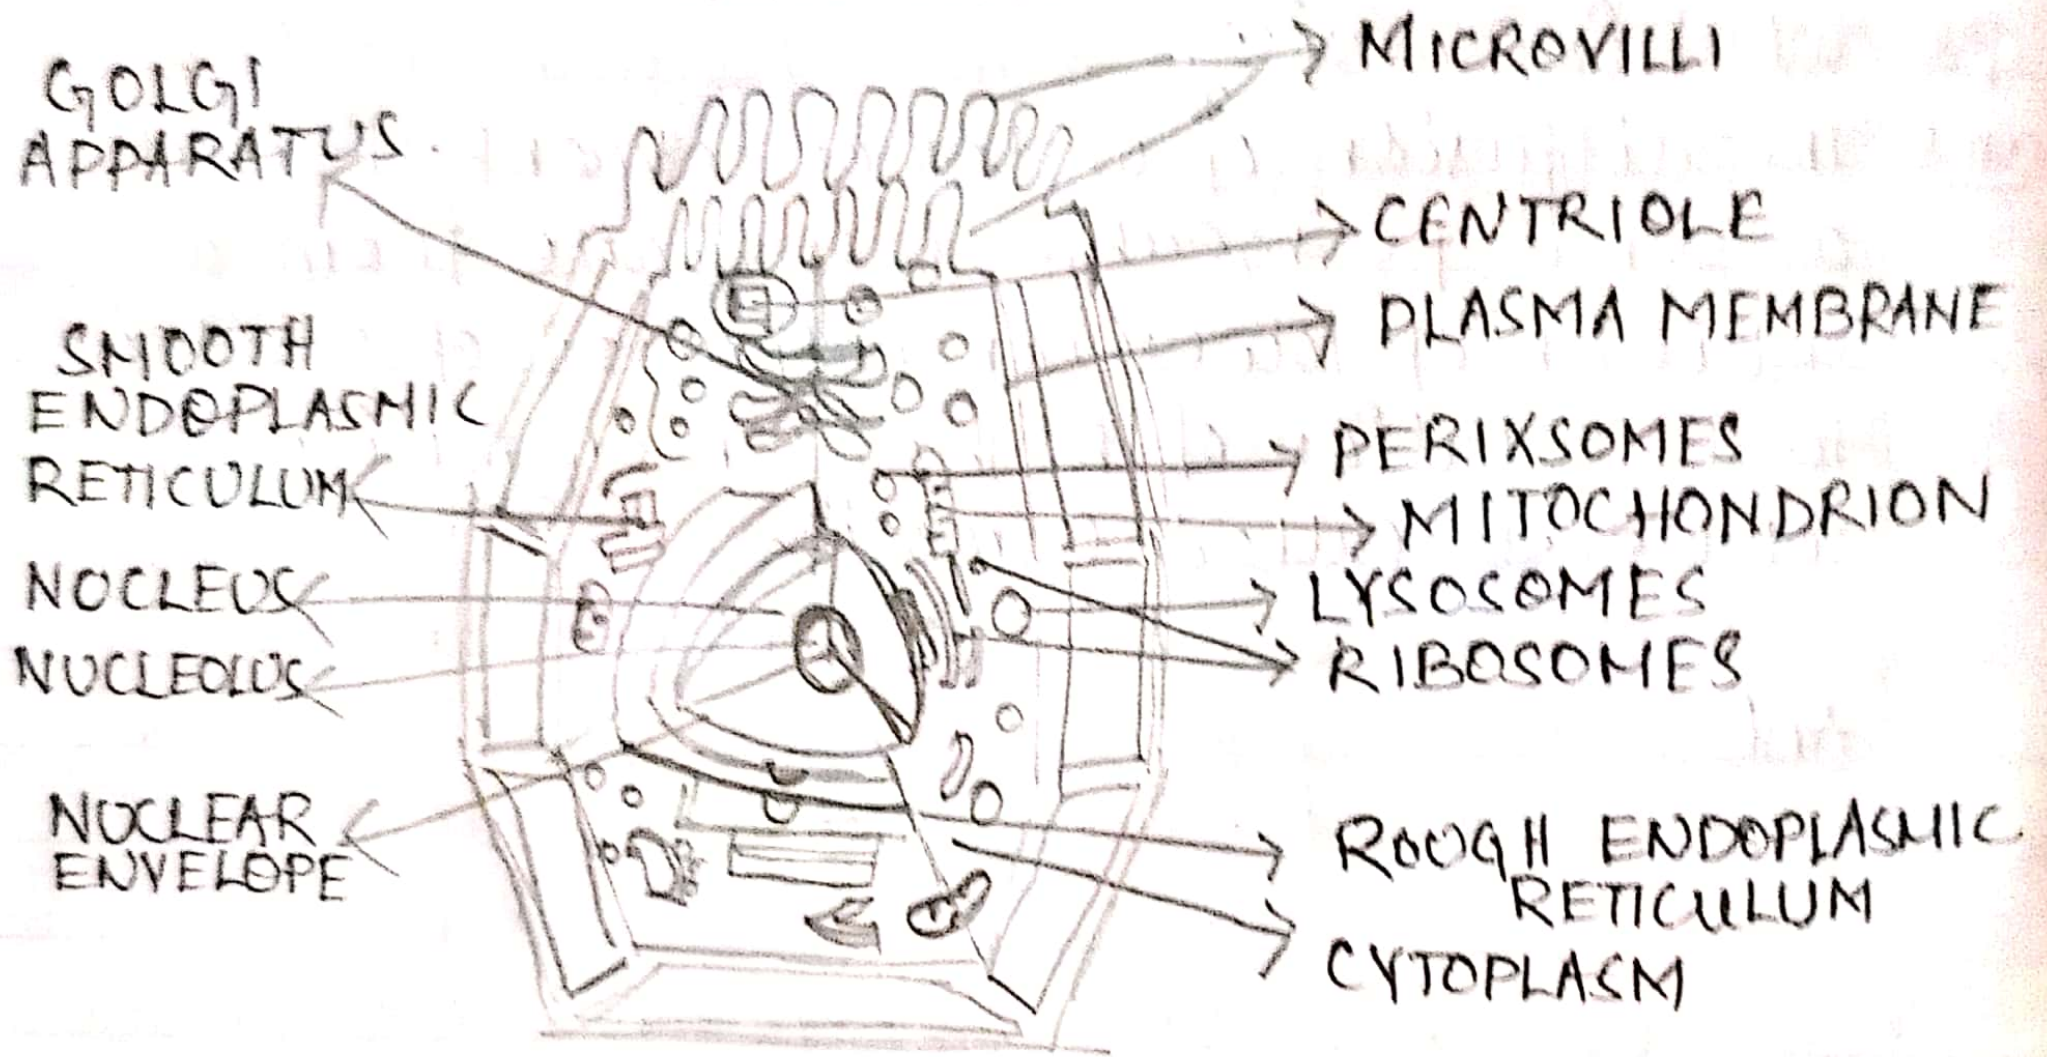 GOLGI
APPARATUS
SMOOTH
ENDOPLASMIC
RETICULUM
NOCLEUS
NUCLEOLUS
NUCLEAR
ENVELOPE
MICROVILLI
CENTRIOLE
PLASMA MEMBRANE
PERIXSOMES
MITOCHONDRION
LYSOSOMES
RIBOSOMES
ROUGH ENDOPLASMIC
RETICULUM
CYTOPLASM